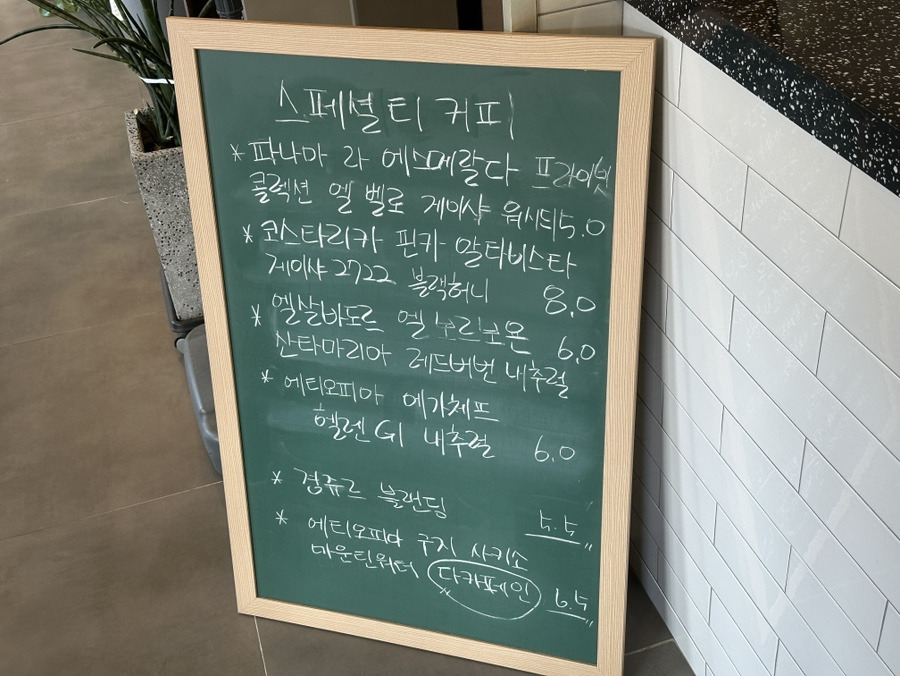 스페셜티 커피
* 파나마 라 에스메랄다 프라이빗
콜렉션 엘 벨로 게이샤 워시드 15.0
* 코스타리카 핀카 알타비스타
게이샤 2722 블랙허니 8.0
* 엘살바도르 엘 보르보욘 6.0
산타마리아 레드버번 내추럴
* 에티오피아 예가체프
헬렌 G1 내추럴 6.0
* 검쥬르 블렌딩 5.5
* 에티오피아 구지 사키소
마운틴워터 디카페인 6.5